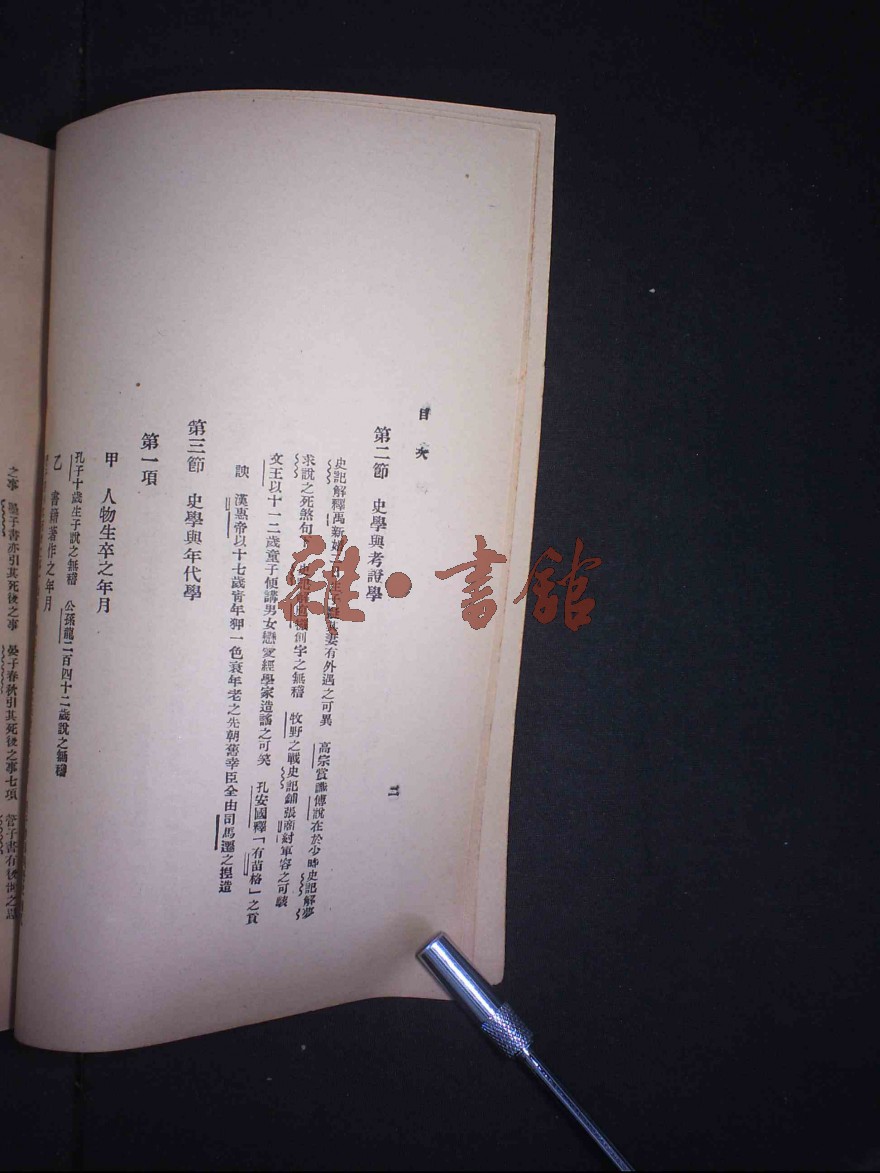 目次
二
第二節 史學與考證學
史記解釋禹新婚 妻有外遇之可異 高宗賞識傅說在於少時史記解夢
求說之死煞句下 創字之無稽 牧野之戰史記鋪張商紂軍容之可駭
文王以十一二歲童子便講男女戀愛經學家造謠之可笑 孔安國釋「有苗格」之貢
諛 漢惠帝以十七歲青年狎一色衰年老之先朝舊幸臣全由司馬遷之捏造
第三節 史學與年代學
第一項
甲 人物生卒之年月
孔子十歲生子說之無稽 公孫龍二百四十二歲說之無稽
乙 書籍著作之年月
之事 墨子書亦引其死後之事 晏子春秋引其死後之事七項 管子書有後
雜·書館